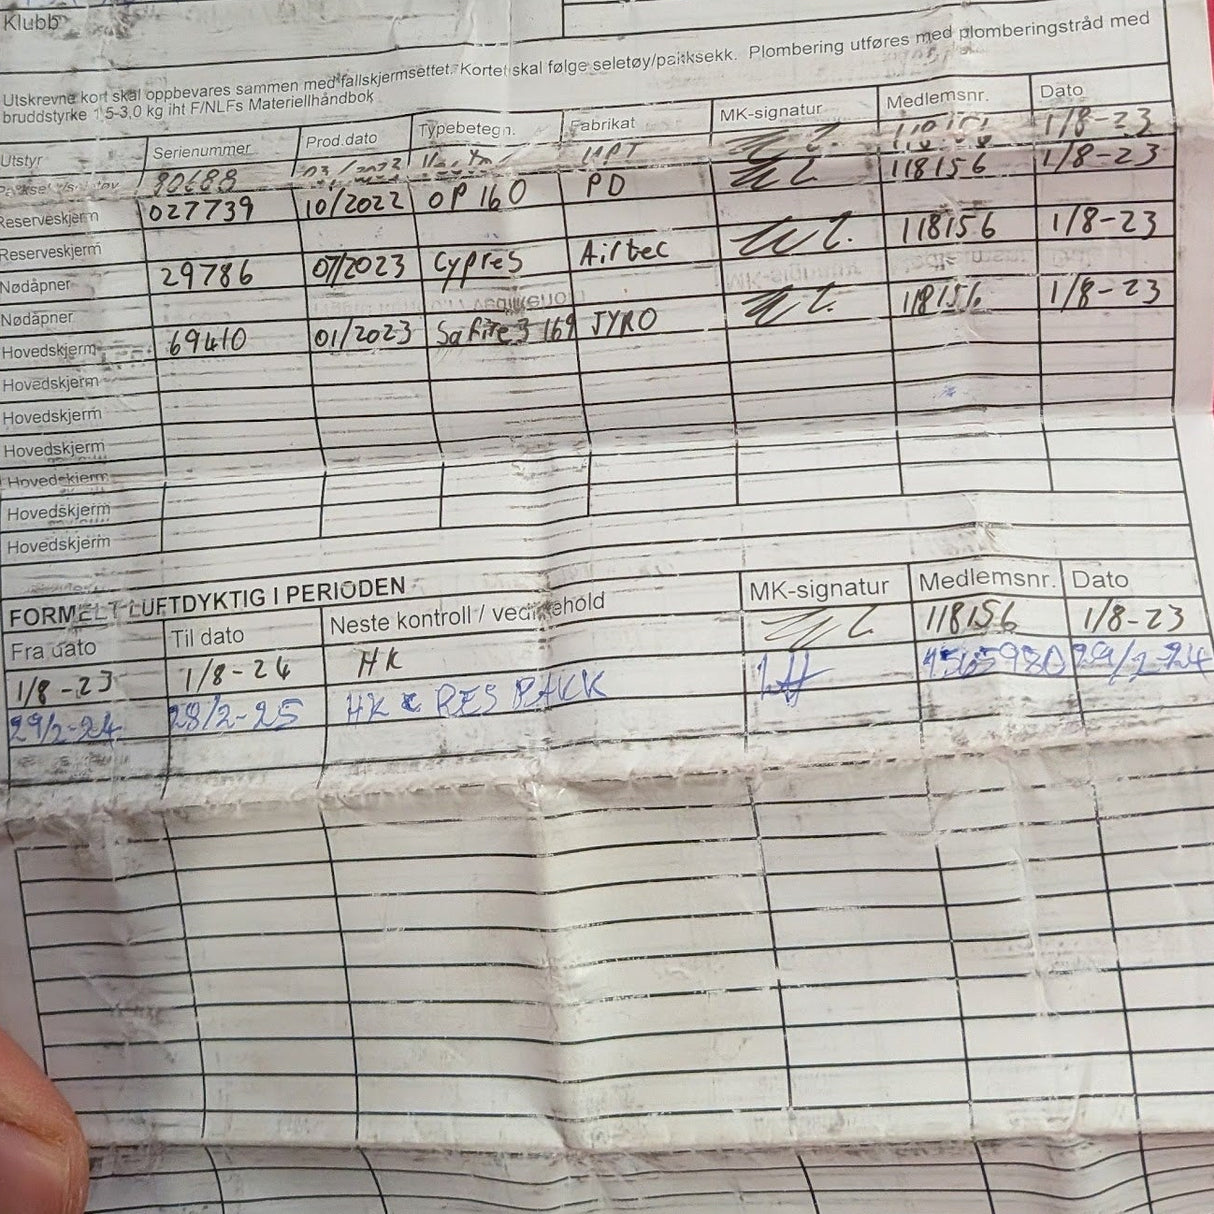 Klubb
Utskrevne kort skal oppbevares sammen med fallskjermsettet. Kortet skal følge seletøy/pakksekk. Plombering utføres med plomberingstråd med
bruddstyrke 1,5-3,0 kg iht F/NLFs Materiellhåndbok
Utstyr Serienummer Prod.dato Typebetegn. Fabrikat MK-signatur Medlemsnr. Dato
90688 UPT 1/8-23
Reserveskjerm 027739 10/2022 OP 160 PD 118156 1/8-23
Reserveskjerm
Nødåpner 29786 07/2023 Cypres Airtec 118156 1/8-23
Nødåpner
Hovedskjerm 69410 01/2023 Safire 3 169 JYRO 118156 1/8-23
Hovedskjerm
Hovedskjerm
Hovedskjerm
Hovedskjerm
Hovedskjerm
Hovedskjerm
FORMELT LUFTDYKTIG I PERIODEN MK-signatur Medlemsnr. Dato
Fra dato Til dato Neste kontroll / vedlikehold
1/8-23 1/8-24 HK 118156 1/8-23
29/2-24 28/2-25 HK & RES PAKK 29/2-24